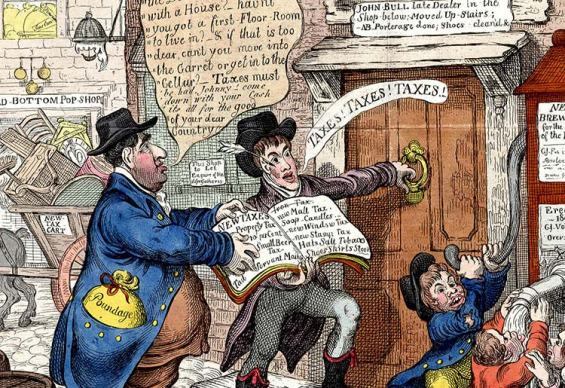 with a House? haven't
you got a first-Floor-Room
to live in? & if that is too
dear, can't you move into
the Garret or get in to the
Cellar? Taxes must
be had Johnny: come
down with your Cash
its all for the good
of your dear
Country.
JOHN BULL late Dealer in the
Shop-below; Moved Up-Stairs;
NB. Porterage done; Shoes clean'd &
TAXES! TAXES! TAXES!
D-BOTTOM POP SHOP
This Shop
to Lett
NEW
CART
NEW TAXES
Property Tax
Small Beer
Tax
Servant Maid
Iron-Tax
new Malt Tax
Soap. Candles.
new Window Tax
new Stamp Tax
Hats. Salt. Tobacco
Shoes Shirts
Poundage
NE
BREW
for the
of the